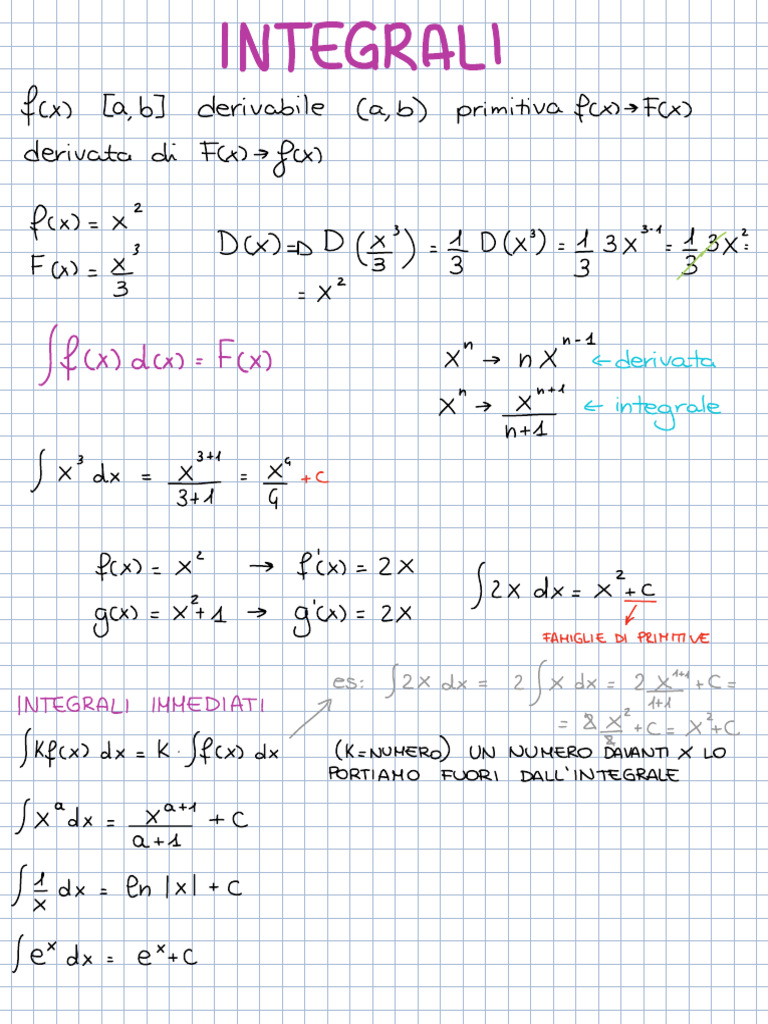 INTEGRALI
f(x) [a,b] derivabile (a,b) primitiva f(x)→F(x)
derivata di F(x)→f(x)
f(x) = x²
F(x) = x³/3
D(x)=D D(x³/3) = 1/3 D(x³) = 1/3 3x³⁻¹ = 1/3 3x² =
= x²
∫f(x) d(x) = F(x)
xⁿ → nxⁿ⁻¹ ← derivata
xⁿ → xⁿ⁺¹/n+1 ← integrale
∫x³ dx = x³⁺¹/3+1 = x⁴/4 + c
f(x) = x² → f'(x) = 2x
g(x) = x²+1 → g'(x) = 2x
∫2x dx = x² + c
FAMIGLIE DI PRIMITIVE
es: ∫2x dx = 2∫x dx = 2 x¹⁺¹/1+1 + c =
= 2 x²/2 + c = x² + c
INTEGRALI IMMEDIATI
∫Kf(x) dx = K · ∫f(x) dx
(K=NUMERO) UN NUMERO DAVANTI X LO
PORTIAMO FUORI DALL'INTEGRALE
∫xᵃ dx = xᵃ⁺¹/a+1 + c
∫1/x dx = ln |x| + c
∫eˣ dx = eˣ + c